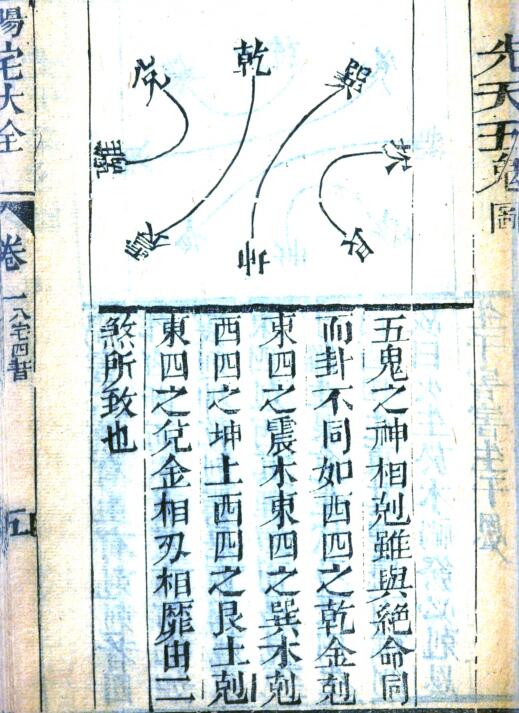 先天五鬼圖
巽
乾
兌
坎
離
艮
坤
震
五鬼之神相剋雖與絕命同
而卦不同如西四之乾金剋
東四之震木東四之巽木剋
西四之坤土西四之艮土剋
東四之兌金相刃相靡由二
煞所致也
陽宅大全
卷一八宅四書